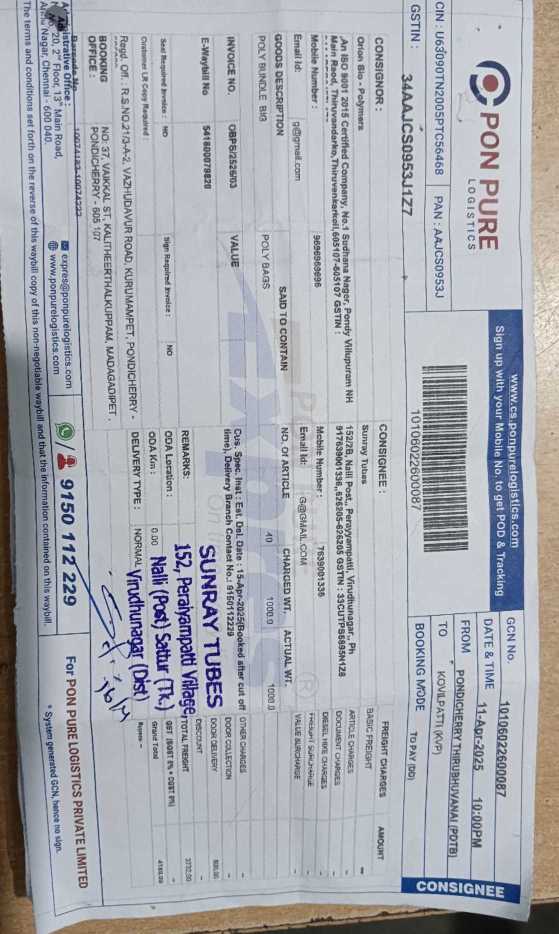 PON PURE
LOGISTICS
www.cs.ponpurelogistics.com
Sign up with your Mobile No. to get POD & Tracking
CIN : U63090TN2005PTC56468 PAN : AAJCS0953J
GSTIN : 34AAJCS0953J1Z7
10106022600087
GCN No. 10106022600087
DATE & TIME 11-Apr-2025 10:00PM
FROM PONDICHERRY THIRUBHUVANAI (PDTB)
TO KOVILPATTI (KVP)
BOOKING MODE TO PAY (DD)
CONSIGNEE
CONSIGNOR :
Orion Bio - Polymers
,An ISO 9001 2015 Certified Company, No.1 Sudhana Nagar, Pondy Villupuram NH
Main Raod, Thiruvandarko,Thiruvankarkoil,605107-605107 GSTIN :
Mobile Number : 9696969696
Email Id: g@gmail.com
CONSIGNEE :
Sunray Tubes
152/2B, Nalli Post,, Peraiyampatti, Virudhunagar,, Ph
917639001336,,626205-626205 GSTIN : 33CUTPB5895N1Z8
Mobile Number : 7639001336
Email Id: G@GMAIL.COM
FREIGHT CHARGES AMOUNT
BASIC FREIGHT
ARTICLE CHARGES
DOCUMENT CHARGES
DIESEL HIKE CHARGES
FREIGHT SURCHARGE
VALUE SURCHARGE
OTHER CHARGES
DOOR COLLECTION
DOOR DELIVERY
DISCOUNT
TOTAL FREIGHT 3732.00
Grand Total
Rupees --
GOODS DESCRIPTION SAID TO CONTAIN NO. Of ARTICLE CHARGED WT. ACTUAL WT.
POLY BUNDLE BIG POLY BAGS 40 1000.0 1000.0
INVOICE NO. OBPS/2526/03 VALUE
E-Waybill No 541600079820
Cus. Spec. Inst : Est. Del. Date : 15-Apr-2025(Booked after cut off
time), Delivery Branch Contact No.: 9150112229
REMARKS:
SUNRAY TUBES
152, Peraiyampatti Village
Nalli (Post) Sattur (Tk.)
Virudhunagar (Dist)
Seal Required Invoice : NO Sign Required Invoice : NO
ODA Location :
Customer LR Copy Required :
ODA Km : 0.00
DELIVERY TYPE : NORMAL
Regd. Off. : R.S.NO.21/3-A-2, VAZHUDAVUR ROAD, KURUMAMPET, PONDICHERRY -
BOOKING
OFFICE :
NO: 37, VAIKKAL ST, KALITHEERTHALKUPPAM, MADAGADIPET ,
PONDICHERRY - 605 107
Barcode No 10074183-10074222
Administrative Office :
20, 2nd Floor, 13th Main Road,
Anna Nagar, Chennai - 600 040.
expres@ponpurelogistics.com
www.ponpurelogistics.com
9150 112 229
For PON PURE LOGISTICS PRIVATE LIMITED
* System generated GCN, hence no sign.
The terms and conditions set forth on the reverse of this waybill copy of this non-negotiable waybill and that the information contained on this waybill.